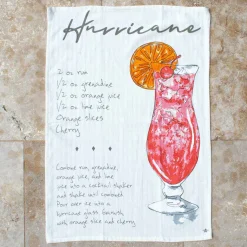 Hurricane
2 oz rum
1/2 oz grenadine
1/2 oz orange juice
1/2 oz lime juice
Orange slices
Cherry
Combine rum, grenadine,
orange juice, and lime
juice into a cocktail shaker
and shake until combined.
Pour over ice into a
hurricane glass. Garnish
with orange slice and cherry.